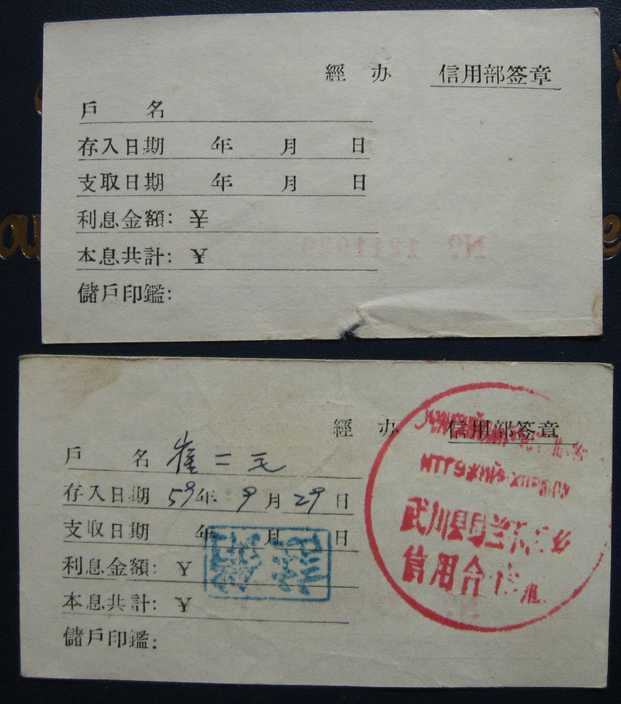 經 办 信用部签章
戶 名
存入日期 年 月 日
支取日期 年 月 日
利息金額: ¥
本息共計: ¥
儲戶印鑑:
經 办 信用部签章
戶 名 崔二毛
存入日期 59年 9月 29日
支取日期 年 月 日
利息金額: ¥
本息共計: ¥
儲戶印鑑:
武川县
信用合